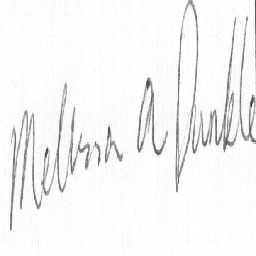 Melissa A Dunkle